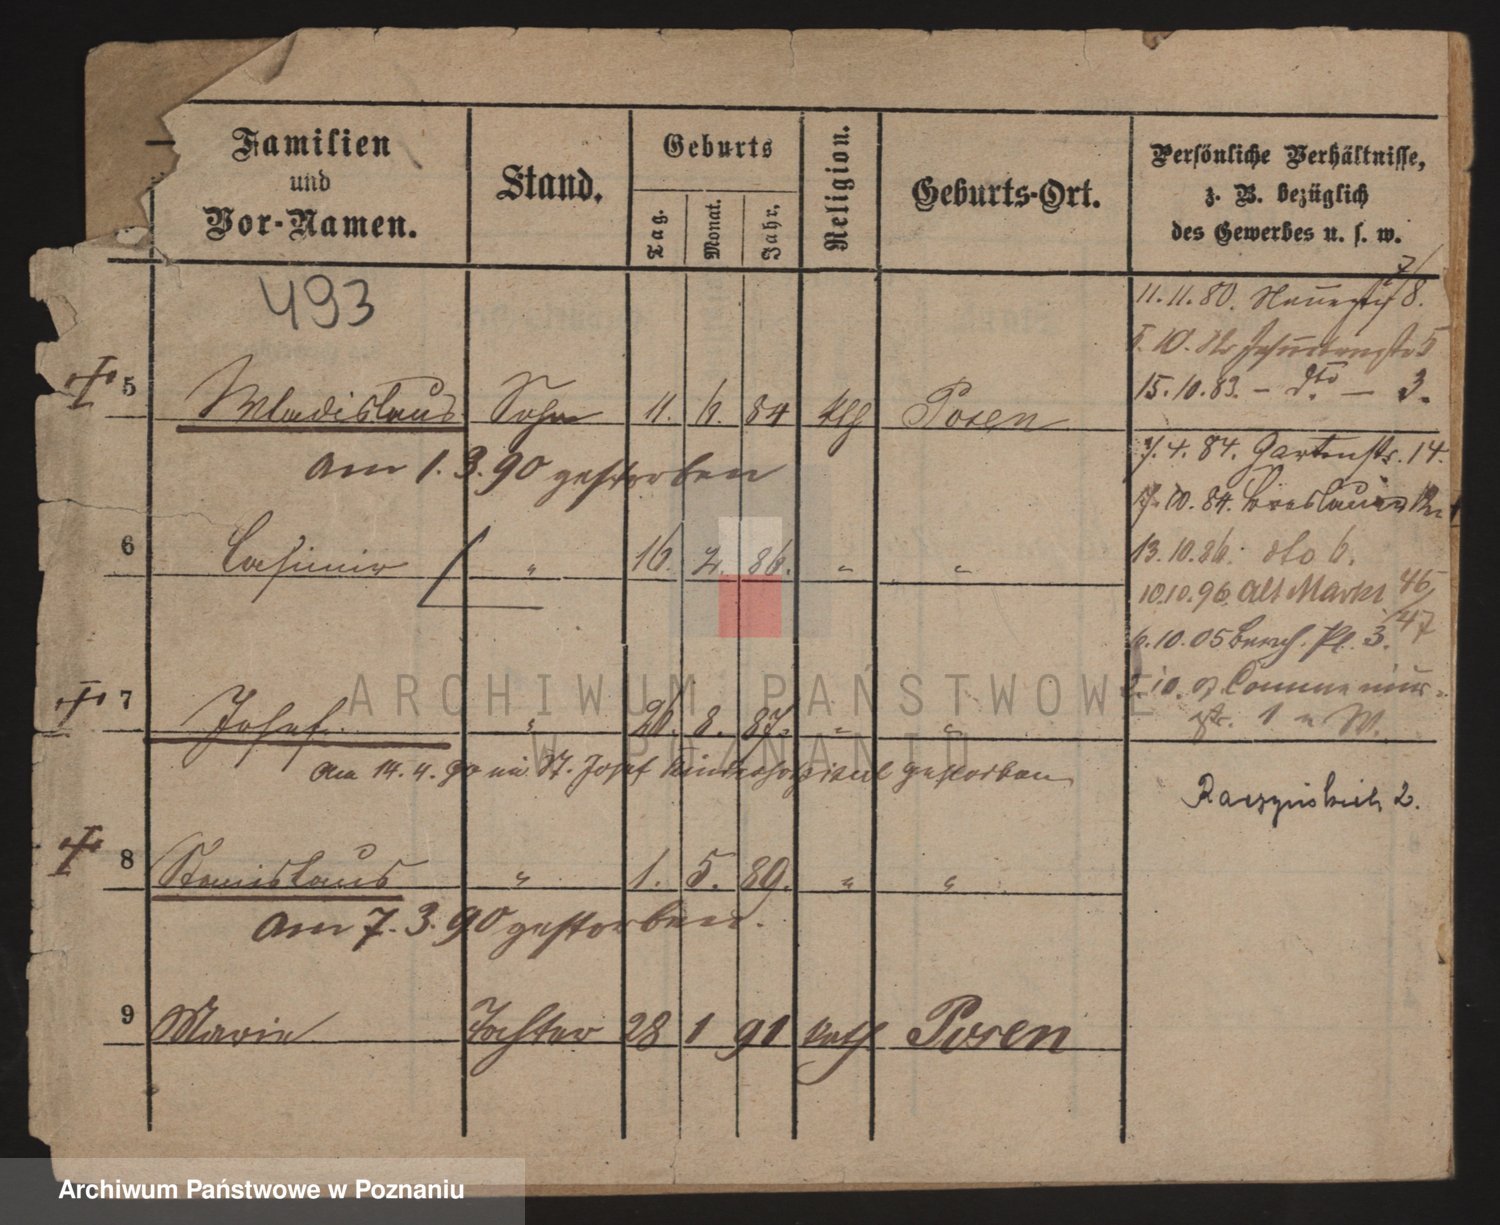 Familien
und
Vor-Namen.
Stand.
Geburts
Tag.
Monat.
Jahr.
Religion.
Geburts-Ort.
Persönliche Verhältnisse,
z. B. bezüglich
des Gewerbes u. s. w.
493
11.11.80. 8.
10. 5
15.10.83. – dto – 3.
5 Wladislaus Sohn 11. 6. 84 kth Posen
am 1.3.90 gestorben
4. 84. Gartenstr. 14.
10. 84. Breslauer
6 Casimir " 16. 2. 86. " "
13.10.86. dto 6.
10.10.96. Alt Markt 46/47
6.10.05 Pl. 3.
7 Josef " 26. 8. 87. " "
10. 1 W.
am 14.4.90 im St. Josef Kinderhospital gestorben
Raczynskich 2.
8 Stanislaus " 1. 5. 89. " "
am 7.3.90 gestorben.
9 Marie Tochter 28 1 91 kath Posen
ARCHIWUM PAŃSTWOWE
W POZNANIU
Archiwum Państwowe w Poznaniu